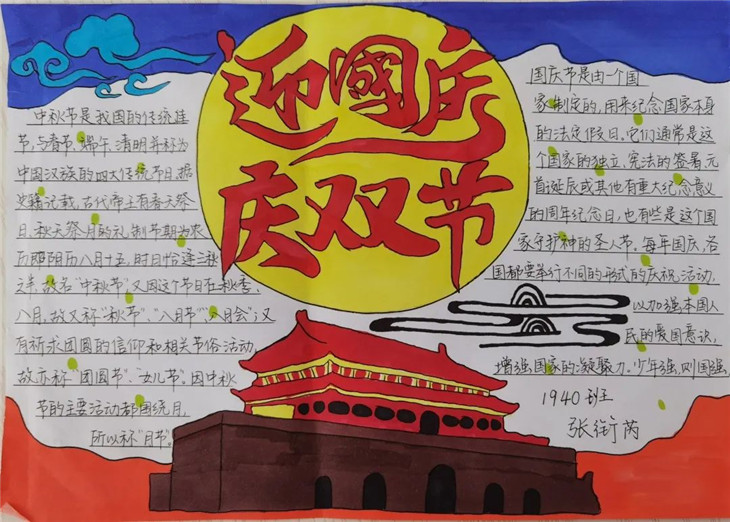 迎國庆
庆双节
中秋节是我国的传统佳
节，与春节、端午、清明并称为
中国汉族的四大传统节日。据
史籍记载，古代帝王有春天祭
日，秋天祭月的礼制节期为农
历即阴历八月十五，时日恰逢三秋
之半，故名“中秋节”；又因这个节日在秋季、
八月，故又称“秋节”、“八月节”、“八月会”；又
有祈求团圆的信仰和相关节俗活动，
故亦称“团圆节”、女儿节。因中秋
节的主要活动都围绕月，
所以称“月节”。
国庆节是由一个国
家制定的，用来纪念国家本身
的法定假日。它们通常是这
个国家的独立、宪法的签署、元
首诞辰或其他有重大纪念意义
的周年纪念日，也有些是这个国
家守护神的圣人节。每年国庆，各
国都要举行不同的形式的庆祝活动，
以加强本国人
民的爱国意识，
增强国家的凝聚力。少年强，则国强
1940班
张衔芮